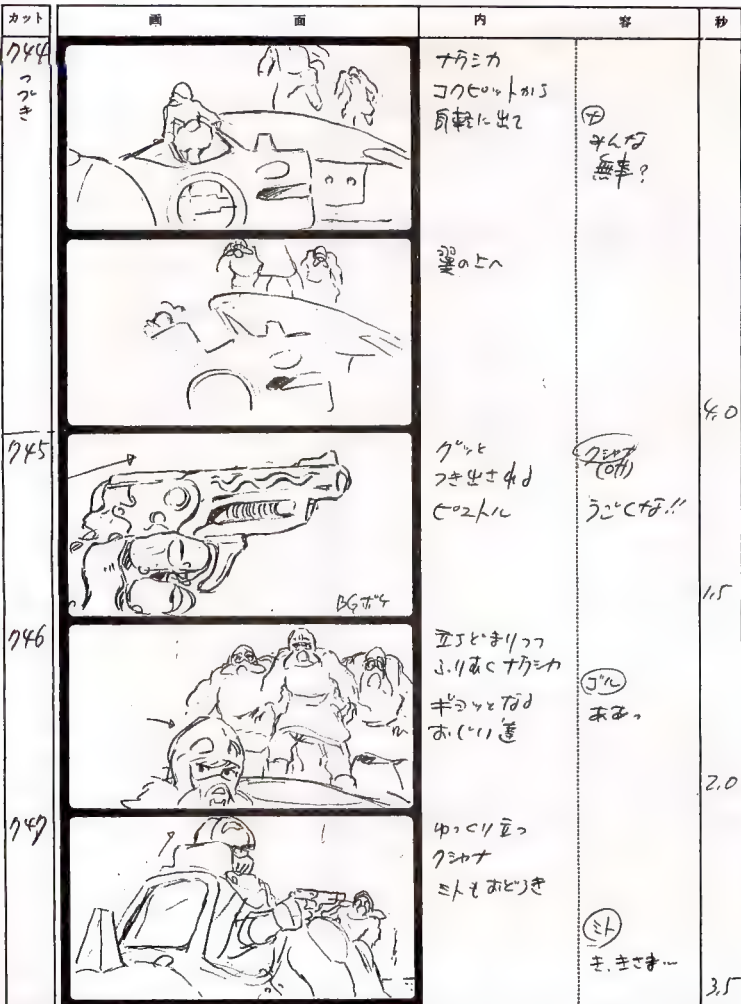 カット
画 面
内 容
秒
744
つづき
ナウシカ
コクピットから
身軽に出て
ナ
みんな
無事?
翼の上へ
4.0
745
グッと
つき出される
ピストル
クシャナ
(off)
うごくな!!
BGボケ
1.5
746
立ちどまりつつ
ふりあくナウシカ
ギョッとなる
おじい達
ゴル
ああっ
2.0
747
ゆっくり立つ
クシャナ
ミトもおどろき
ミト
き、きさま…
3.5